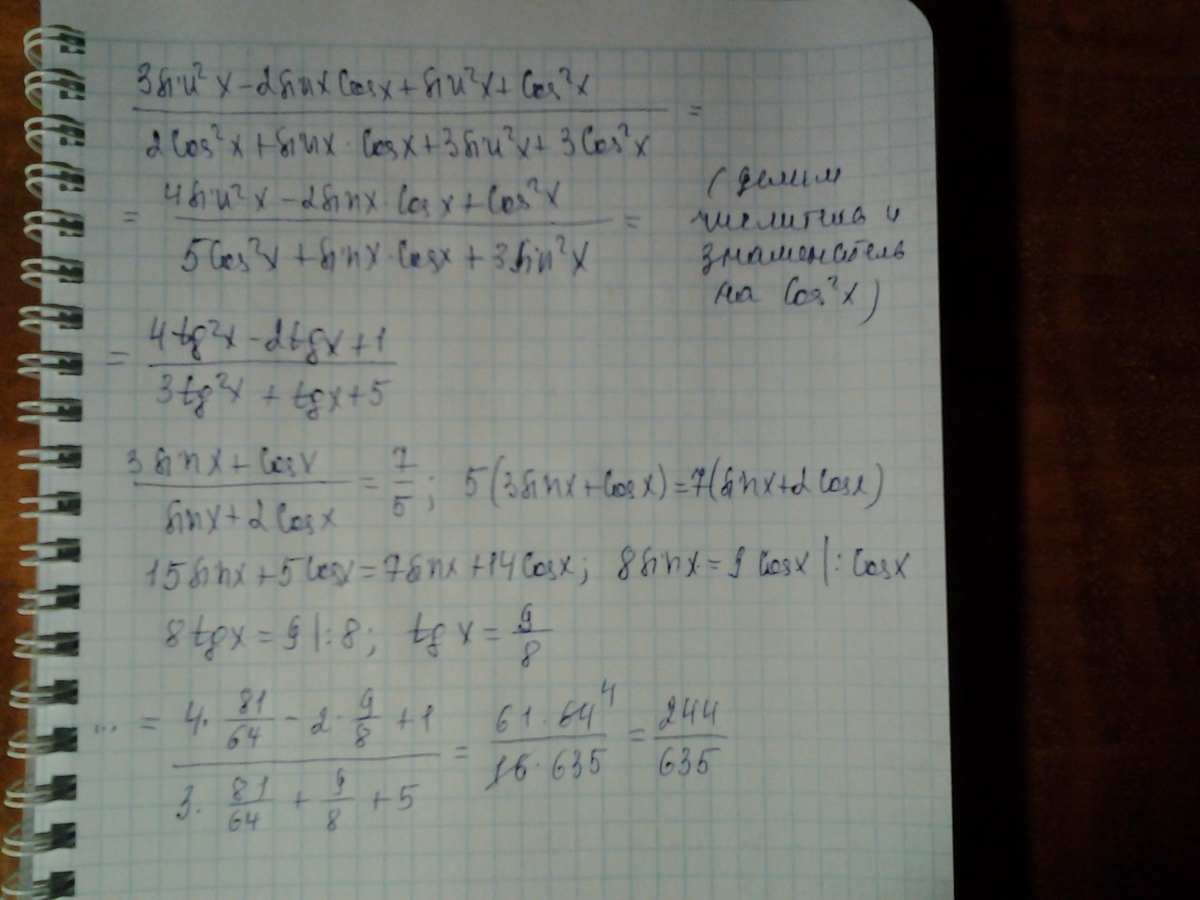 (3sin²x - 2sinx cosx + sin²x + cos²x)/(2cos²x + sinx · cosx + 3sin²x + 3cos²x) =
= (4sin²x - 2sinx · cosx + cos²x)/(5cos²x + sinx · cosx + 3sin²x) =
(делим
числитель и
знаменатель
на cos²x)
= (4tg²x - 2tgx + 1)/(3tg²x + tgx + 5)
(3sinx + cosx)/(sinx + 2cosx) = 7/5; 5(3sinx + cosx) = 7(sinx + 2cosx)
15sinx + 5cosx = 7sinx + 14cosx; 8sinx = 9cosx |: cosx
8tgx = 9 |: 8; tgx = 9/8
... = (4 · 81/64 - 2 · 9/8 + 1)/(3 · 81/64 + 9/8 + 5) = (61 · 64⁴)/(16 · 635) = 244/635